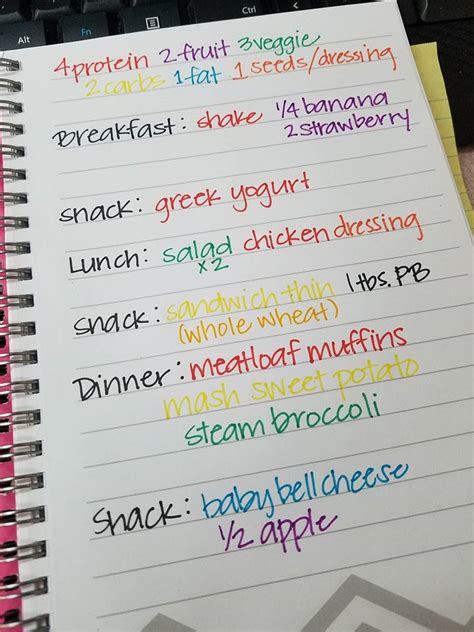 Alt
Fn
Ctrl
4 protein 2 fruit 3 veggie
2 carbs 1 fat 1 seeds/dressing
Breakfast: shake 1/4 banana
2 strawberry
snack: greek yogurt
Lunch: salad chicken dressing
x2
Snack: sandwich thin 1 tbs. PB
(whole wheat)
Dinner: meatloaf muffins
mash sweet potato
steam broccoli
Snack: babybell cheese
1/2 apple